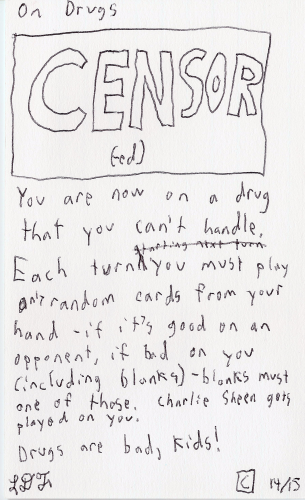 On Drugs
CENSOR
(ed)
You are now on a drug
that you can't handle.
starting next turn
Each turn you must play
random cards from your
hand - if it's good on an
opponent, if bad on you
(including blanks) - blanks must
one of those. Charlie Sheen gets
played on you.
Drugs are bad, kids!
LDF
C 14/15